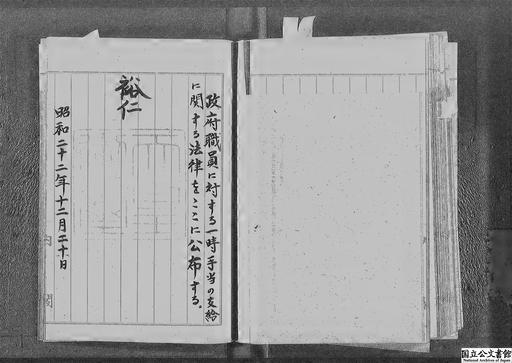 政府職員に対する一時手当の支給
に関する法律をここに公布する。
裕仁
昭和二十二年十二月二十日
内閣
国立公文書館
National Archives of Japan